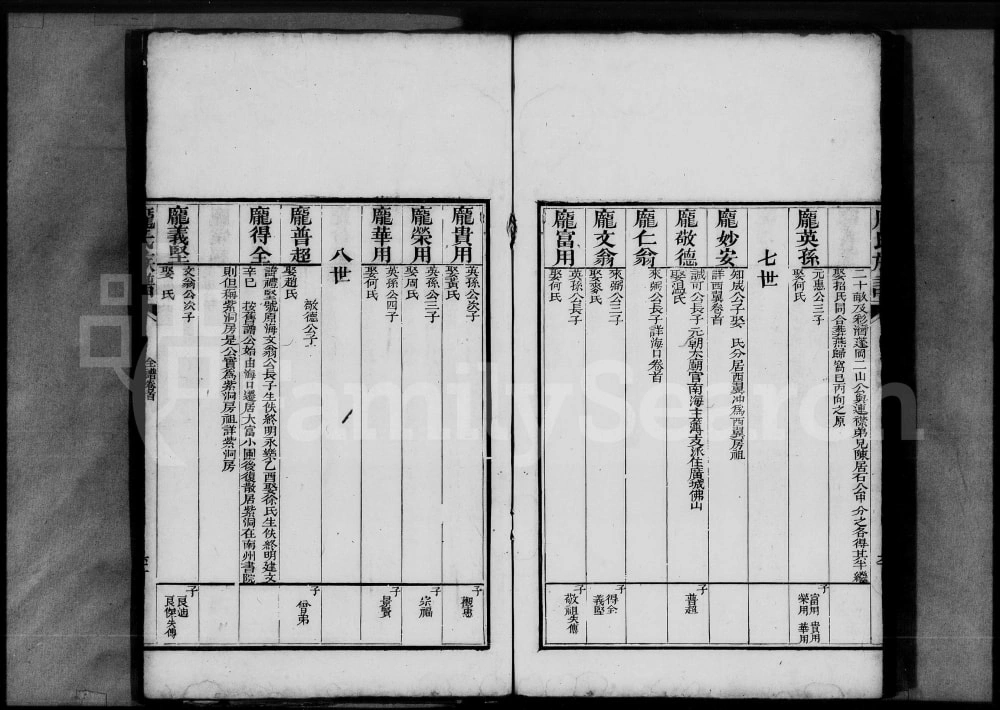 二十畝及彩塱蓬岡二山公與連襟弟兄陳居石公甲分之各得其半繼
娶招氏同合葬燕歸窩巳丙向之原
龐英孫
元惠公三子
娶何氏
子
富用 貴用
榮用 華用
七世
龐妙安
知成公子娶 氏分居西翼冲為西翼房祖
詳西翼卷首
龐敬德
誠可公長子元朝太廟官南海主簿支派住廣城佛山
娶馮氏
子
普超
龐仁翁
來弼公長子詳海口卷首
龐文翁
來弼公三子
娶麥氏
子
得全
義堅
龐富用
英孫公長子
娶何氏
子
敬祖失傳
龐貴用
英孫公次子
娶黃氏
子
觀惠
龐榮用
英孫公三子
娶周氏
子
宗福
龐華用
英孫公四子
娶何氏
子
景賢
八世
龐普超
敬德公子
娶趙氏
子
龐得全
譜禮堅號原海文翁公長子生佚終明永樂乙酉娶徐氏生佚終明建文
辛巳 按舊譜公始由海口遷居大富小圃後復散居紫洞在南州書院
則但稱紫洞房是公實為紫洞房祖詳紫洞房
龐義堅
文翁公次子
娶 氏
子
良迪
良傑失傳
全譜卷首
FamilySearch